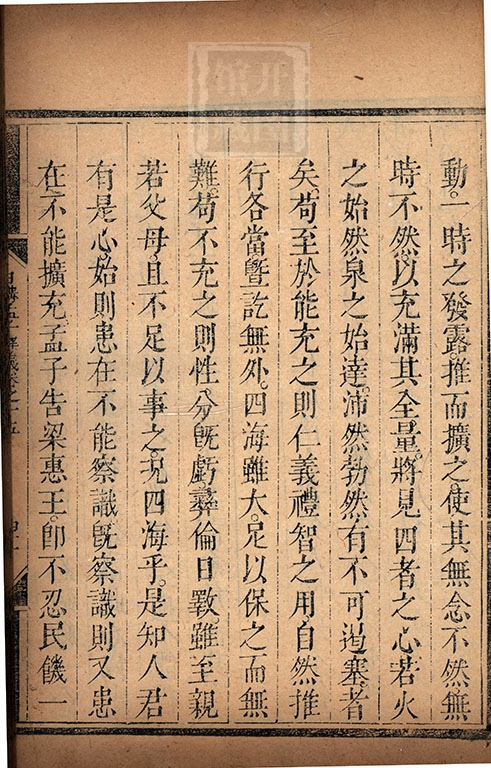 動。一時之發露。推而擴之。使其無念不然。無
時不然。以充滿其全量。將見四者之心。若火
之始然。泉之始達。沛然勃然。有不可遏塞者
矣。苟至於能充之。則仁義禮智之用。自然推
行各當。曁訖無外。四海雖大。足以保之而無
難。苟不充之。則性分旣虧。彝倫日斁。雖至親
若父母。且不足以事之。况四海乎。是知人君
有是心。始則患在不能察識。旣察識則又患
在不能擴充。孟子告梁惠王。卽不忍民饑一
日講四書解義卷之十五